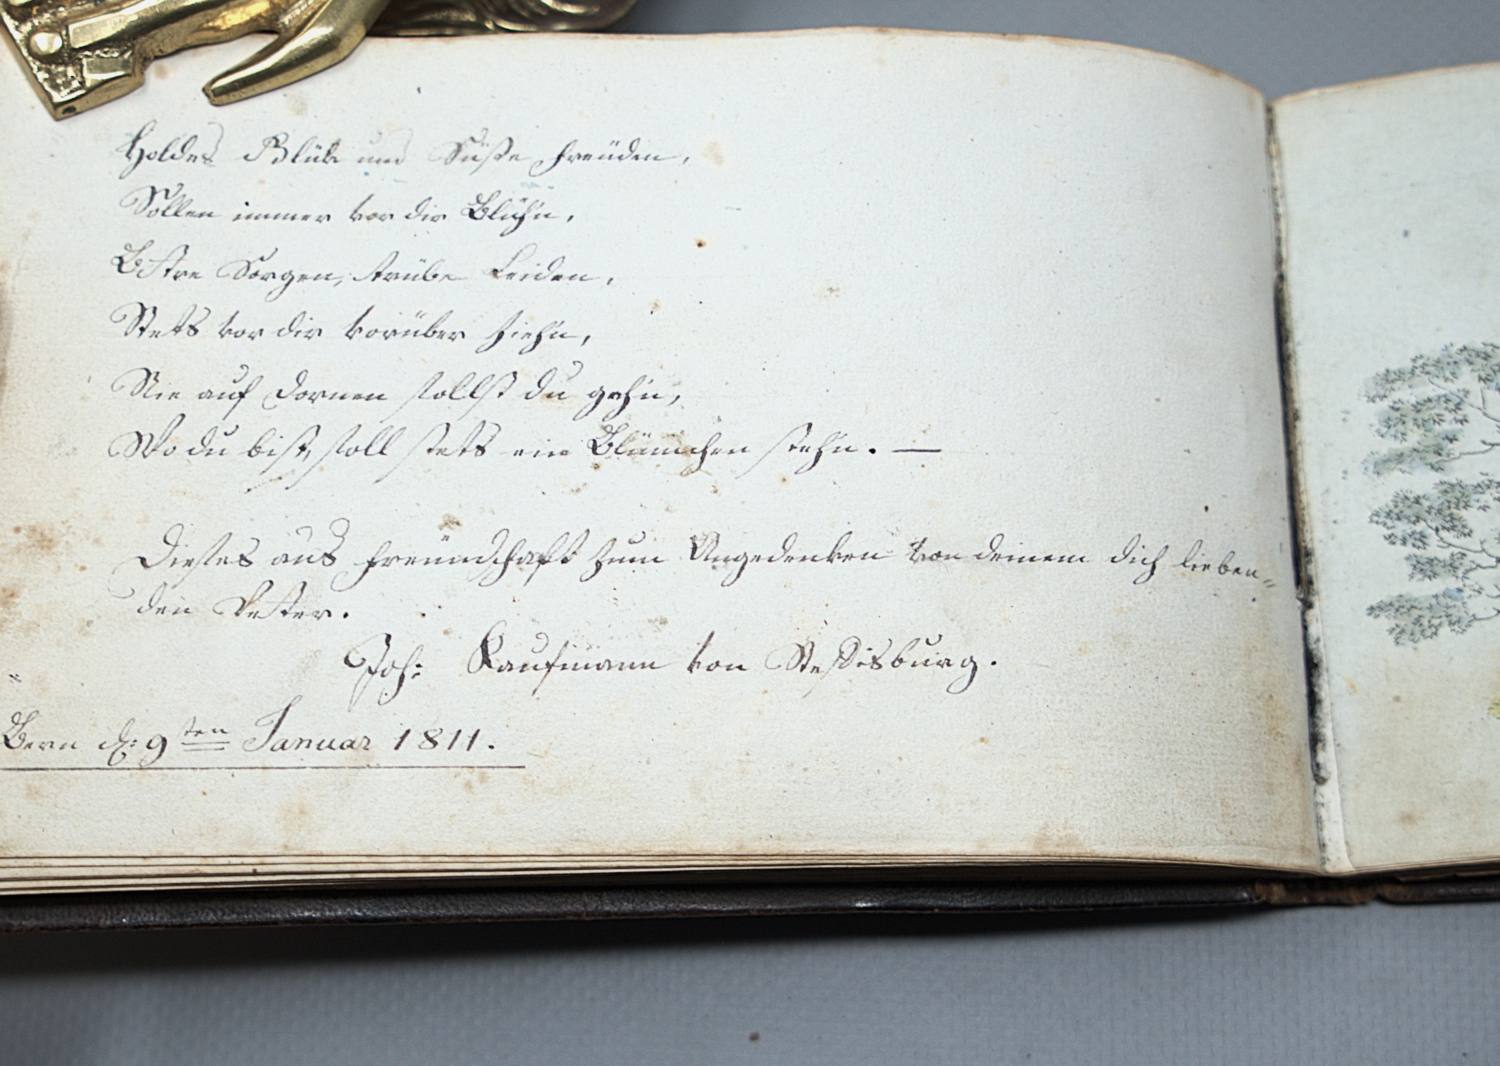 Holdes Blüke und Süsse freüden,
Sollen immer vor dir Blüh'n,
Bittre Sorgen, trübe Leiden,
Stets vor dir vorüber zieh'n,
Nie auf Dornen sollst du geh'n,
Wo du bist, soll stets ein Blümchen steh'n. —
Dieses aus freündschaft zum Angedenken von deinem dich lieben=
den Vetter.
Joh: Kaufmann von Steffisburg.
Bern d: 9ten Januar 1811.